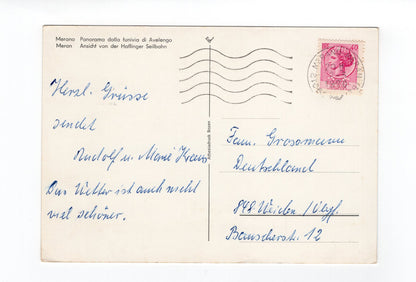 Merano Panorama dalla funivia di Avelengo
Meran Ansicht von der Haflinger Seilbahn
Herzl. Grüsse
sendet
Rudolf u. Marie Kraus
Das Wetter ist auch nicht
viel schöner.
40
Fam. Grossmann
Deutschland
848 Weiden / Opf.
Bauscherstr. 12